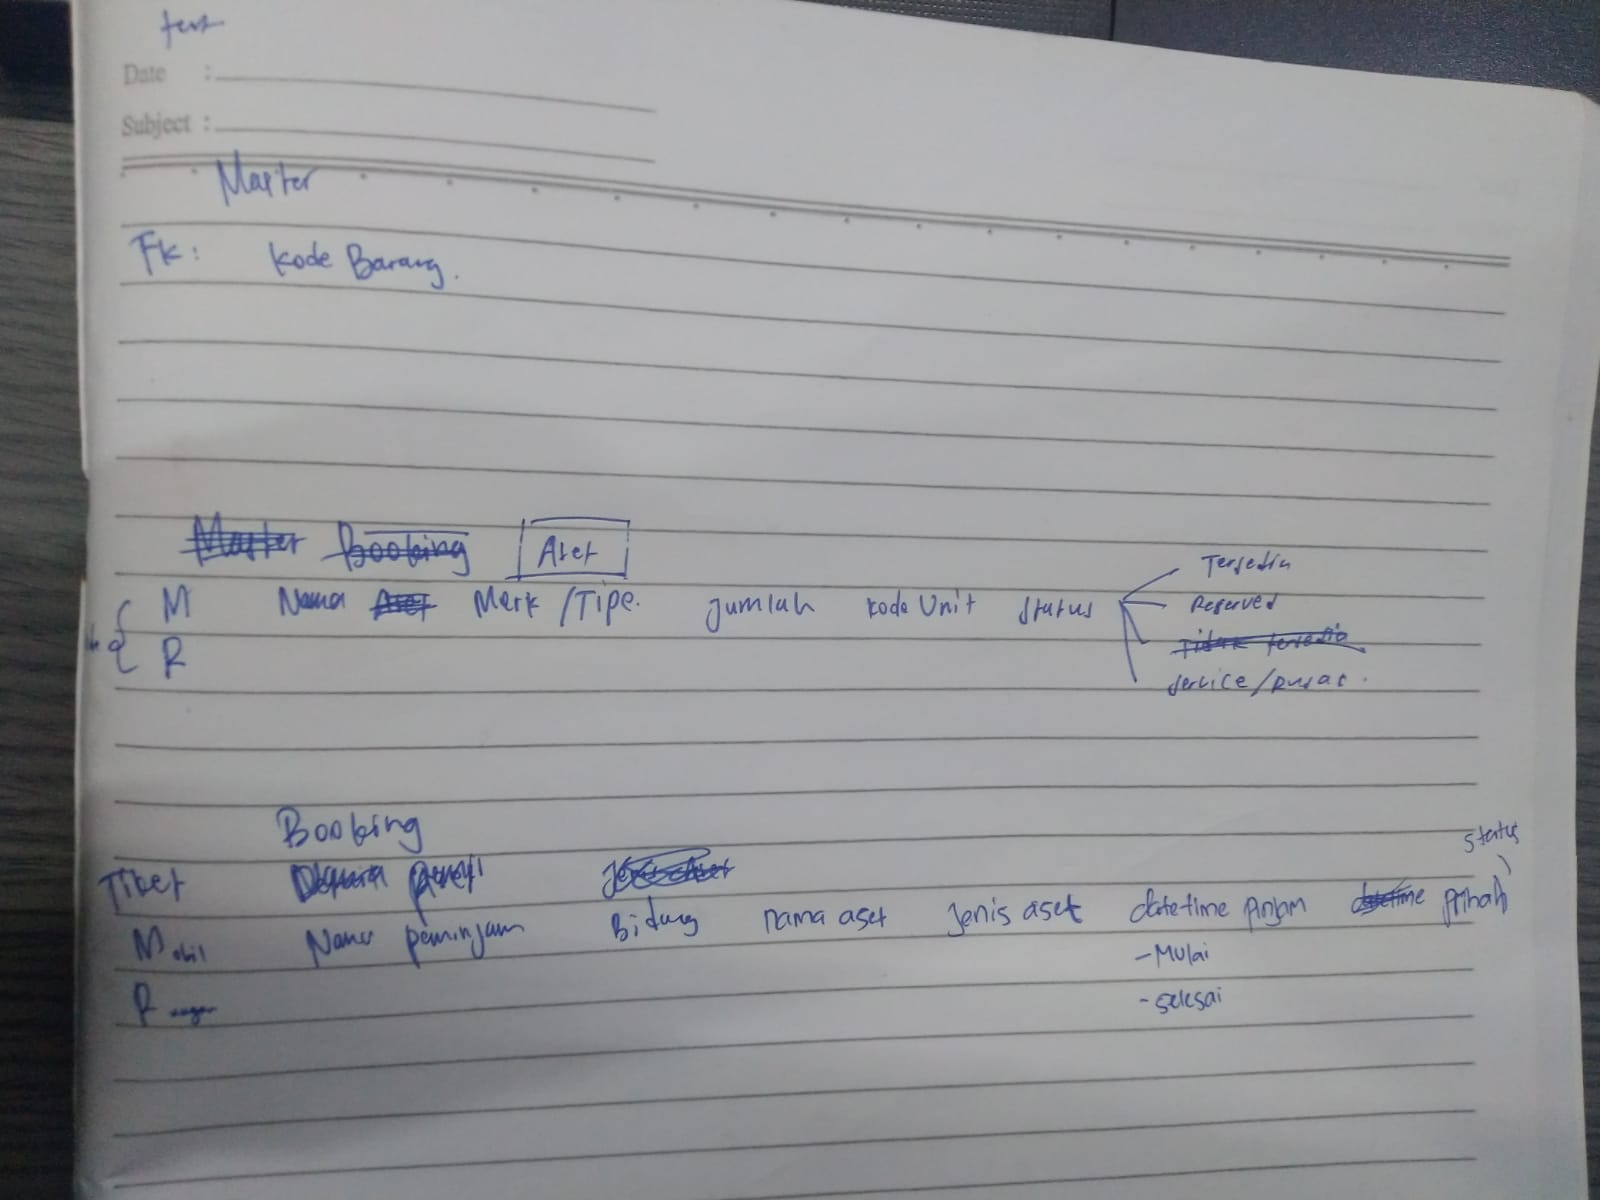 test
Date :
Subject :
Master
Fk : Kode Barang.
Master Booking Aset
M Nama Aset Merk /Tipe. jumlah kode Unit status
Tersedia
Reserved
Tidak tersedia
service/rusak.
R
Booking
status
Tiket
Mobil Nama peminjam Bidang nama aset Jenis aset datetime pinjam datetime
- Mulai
R
- selesai